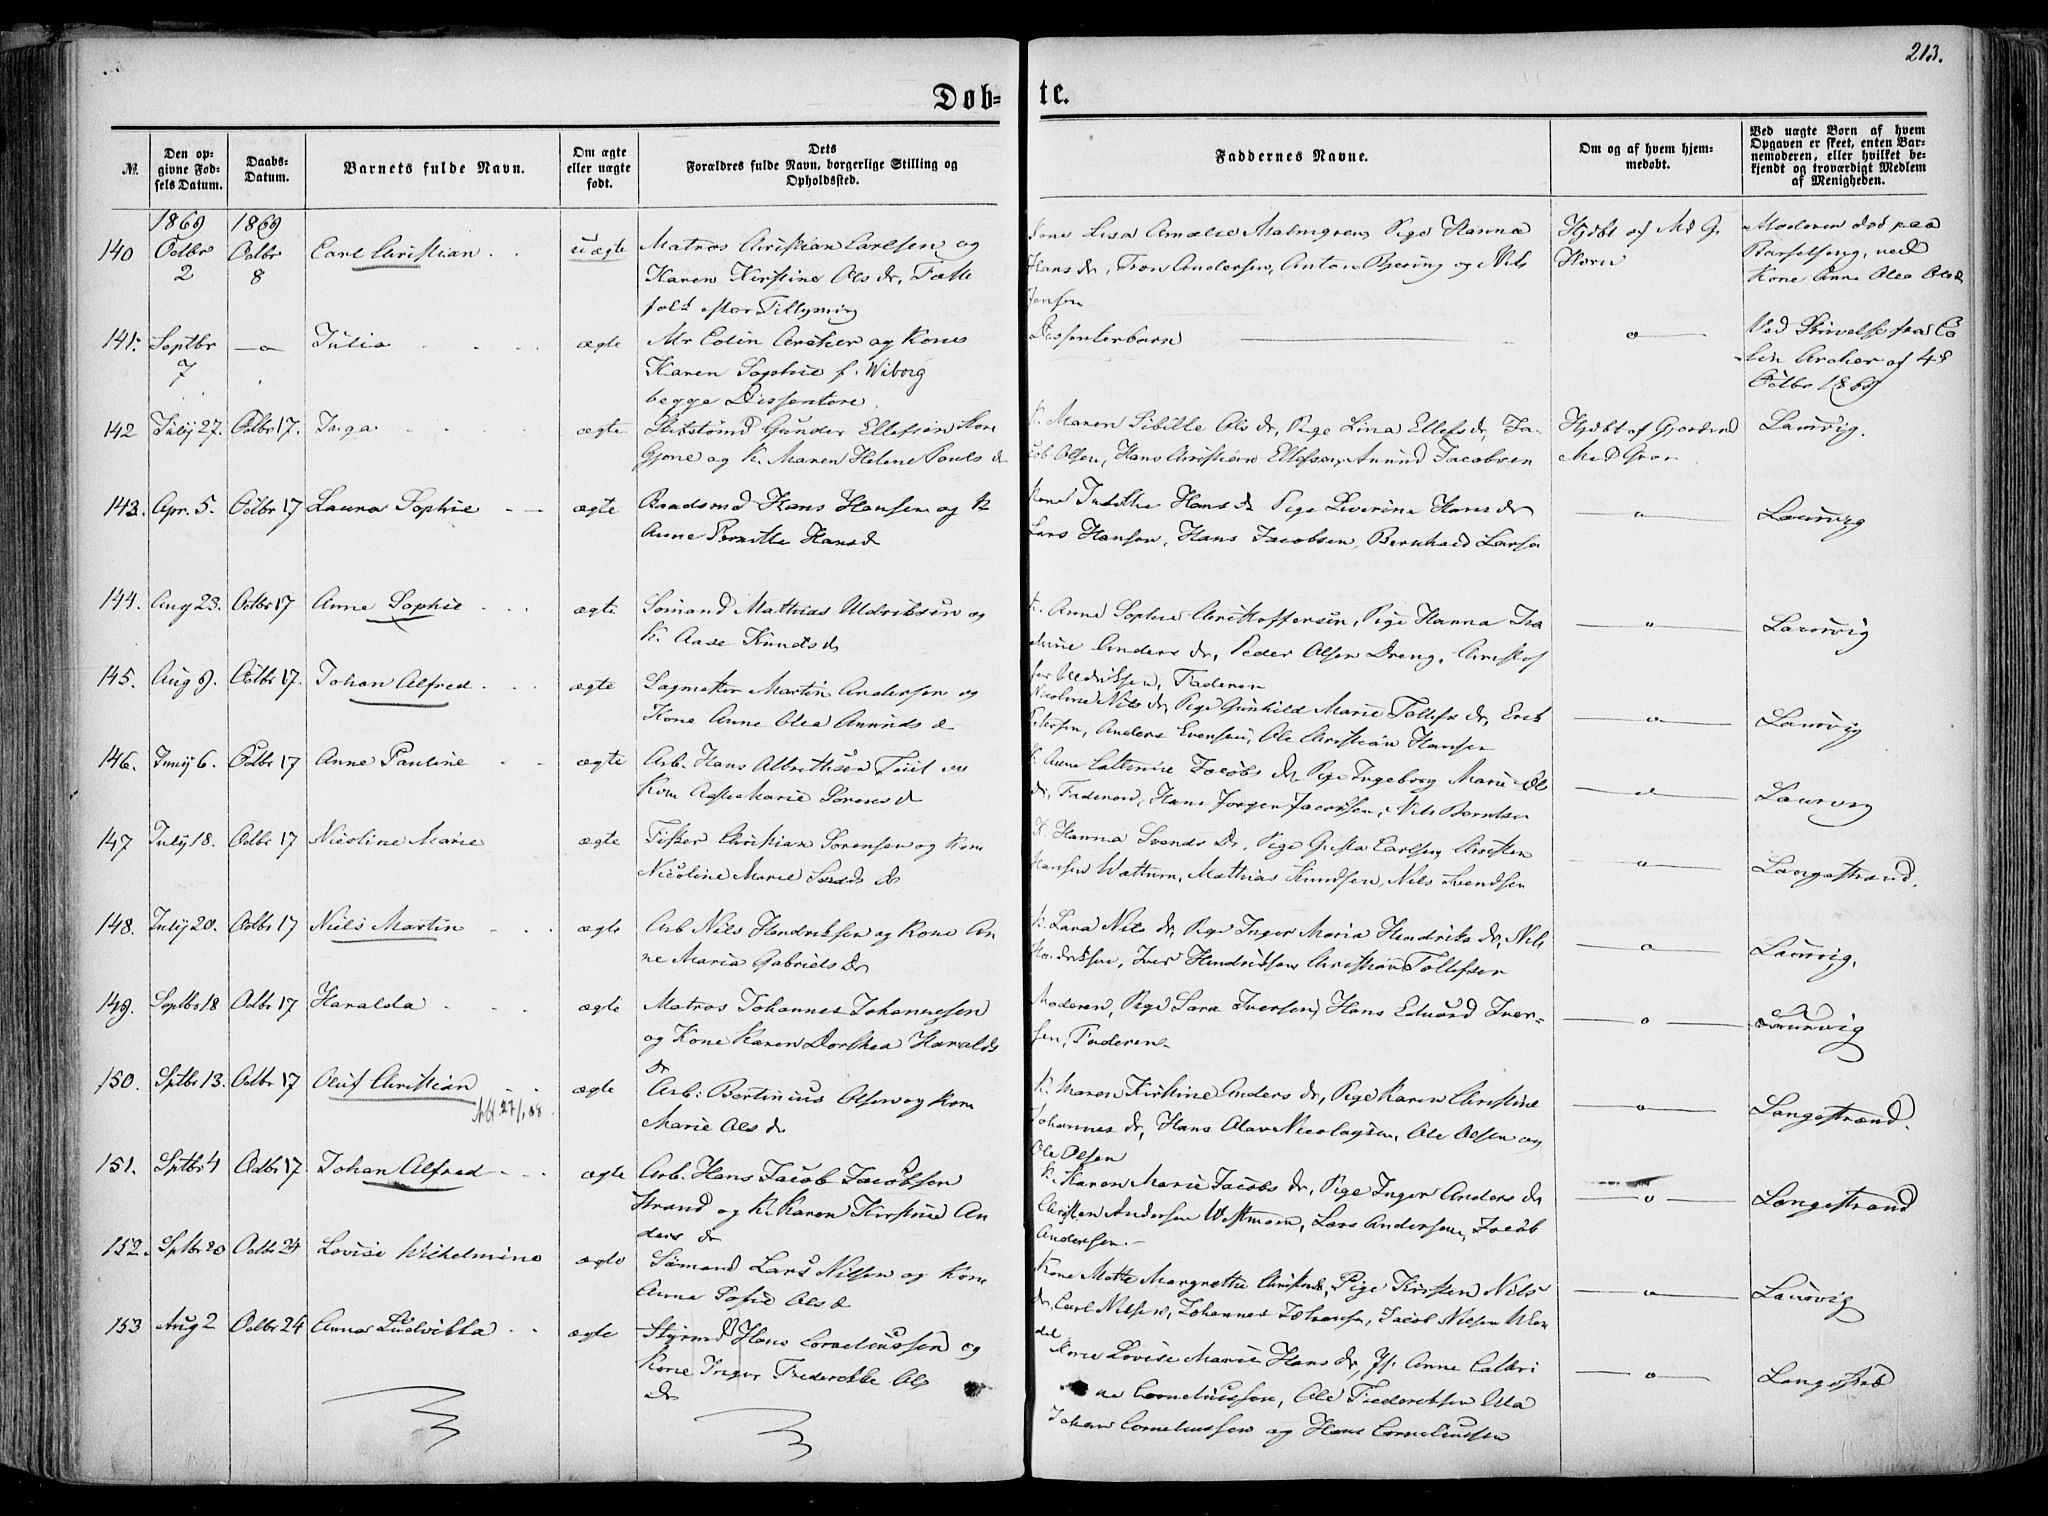 213.
Døb=
te.
№.
Den op-
givne Fød-
sels Datum.
Daabs-
Datum.
Barnets fulde Navn.
Om ægte
eller uægte
født.
Dets
Forældres fulde Navn, borgerlige Stilling og
Opholdssted.
Faddernes Navne.
Om og af hvem hjem-
medøbt.
Ved uægte Børn af hvem
Opgaven er skeet, enten Bar-
nemoderen, eller hvilket be-
kjendt og troværdigt Medlem
af Menigheden.
1869 1869
140 Octbr 2 Octbr 8 Carl Christian uægte
Matros Christian Carlsen og
Karen Kirstine Ols dr,
Kone Lisa Amalie Malmgren, Pige Hanna
Hans dr, Andersen, Anton Bjering og Nils
Jensen
Hjdbt af Md G.
Horn
Moderen død paa
Barselseng, ved
Kone Anne Olea Ols d
141. Septbr 7 — Julia ægte
Mr Colin Archer og Kone
Karen Sophie f. Wiborg
begge Dissentere
Dissenterbarn
— o —
Ved Skrivelse fra Co
lin Archer af 4d
Octbr 1869
142 July 27. Octbr 17. Inga ægte
Skibstømd Gunder Ellefsen
Gjone og K. Maren Helene Pauls d
K. Maren Sibille Ols dr, Pige Lina Ellefs dr, Ja-
cob Olsen, Hans Christian Ellefsen, Anund Jacobsen
Hjdbt af Gjordemd
Laurvig.
143. Apr. 5. Octbr 17 Laura Sophie ægte
Baadsmd Hans Hansen og K
Anne Pernille Hansd
Kone Hans d Pige Severine Hans dr
Lars Hansen, Hans Jacobsen, Bernhard Larsen
— o —
Laurvig
144. Aug 23. Octbr 17 Anne Sophie ægte
Sømand Mathias Uldriksen og
K. Aase Knuds d
K. Anne Sophie Christoffersen, Pige Hanna
Anders dr, Peder Olsen Dreng, Christof
fer Uldriksen, Faderen
— o —
Laurvig
145. Aug 9. Octbr 17. Johan Alfred ægte
Martin Andersen og
Kone Anne Olea Anunds d
Nicoline Nils dr, Pige Gunhild Marie Tollefs dr, Erik
Petersen, Anders Evensen, Ole Christian Hansen
— o —
Laurvig
146. Juny 6. Octbr 17 Anne Pauline ægte
Arb. Hans Albrethsen og
Kone Marie Sorens d
K. Anne Cathrine Jacobs dr Pige Ingeborg Marie Ols
dr, Faderen, Hans Jorgen Jacobsen, Nils Berntsen
— o —
Laurvig
147 July 18. Octbr 17 Nicoline Marie ægte
Fisker Christian Sorensen og Kone
Nicoline Marie
K. Hanna Svends Dr, Pige Gusta Carlsen, Christen
Hansen Wattum, Mathias Knudsen, Nils Svendsen
— o —
Langestrand.
148. July 20. Octbr 17 Niels Martin ægte
Arb Nils Hendriksen og Kone An
ne Maria Gabriels Dr
K. Lara Nils dr, Pige Inger Maria Hendriks dr, Nils
Hendriksen, Iver Hendriksen Christian Tollefsen
— o —
Laurvig.
149. Septbr 18 Octbr 17 Haralda ægte
Matros Johannes Johannesen
og Kone Karen Dorthea Haralds
dr
Moderen, Pige Sara Iversen, Hans Eduard Iver-
sen, Faderen
— o —
Laurvig
150. Sptbr 13. Octbr 17 Oluf Christian ægte
Arb: Bertinius Olsen og Kone
Marie Ols dr
K. Maren Kirstine Anders dr, Pige Karen Christine
Johannes dr, Hans Olav Nicolaysen, Ole Olsen og
Ole Olsen
— o —
Langestrand.
151. Sptbr 4 Octbr 17 Johan Alfred ægte
Arb. Hans Jacob Jacobsen
Strand og K. Karen Kirstine An
ders dr
K. Karen Marie Jacobs dr, Pige Inger Anders dr
Christen Andersen Westmoen, Lars Andersen, Jacob
Andersen.
— o —
Langestrand
152. Sptbr 20 Octbr 24 Lovise Wilhelmine ægte
Sømand Lars Nilsen og Kone
Anne Sofie Ols d
Kone Mette Margrethe Pige Kirsten Nils
dr, Carl Nilsen, Johannes Johansen, Jacob Nilsen
— o —
Laurvig
153 Aug 2 Octbr 24 Anna Ludvikka ægte
Styrmd Hans Corneliussen og
Kone Inger Frederikke Ols
dr
Kone Lovise Marie Hans dr, P. Anne Cathri
ne Corneliussen, Ole Frederiksen Ula
Johan Corneliussen og Hans Corneliussen
— o —
Langestrd